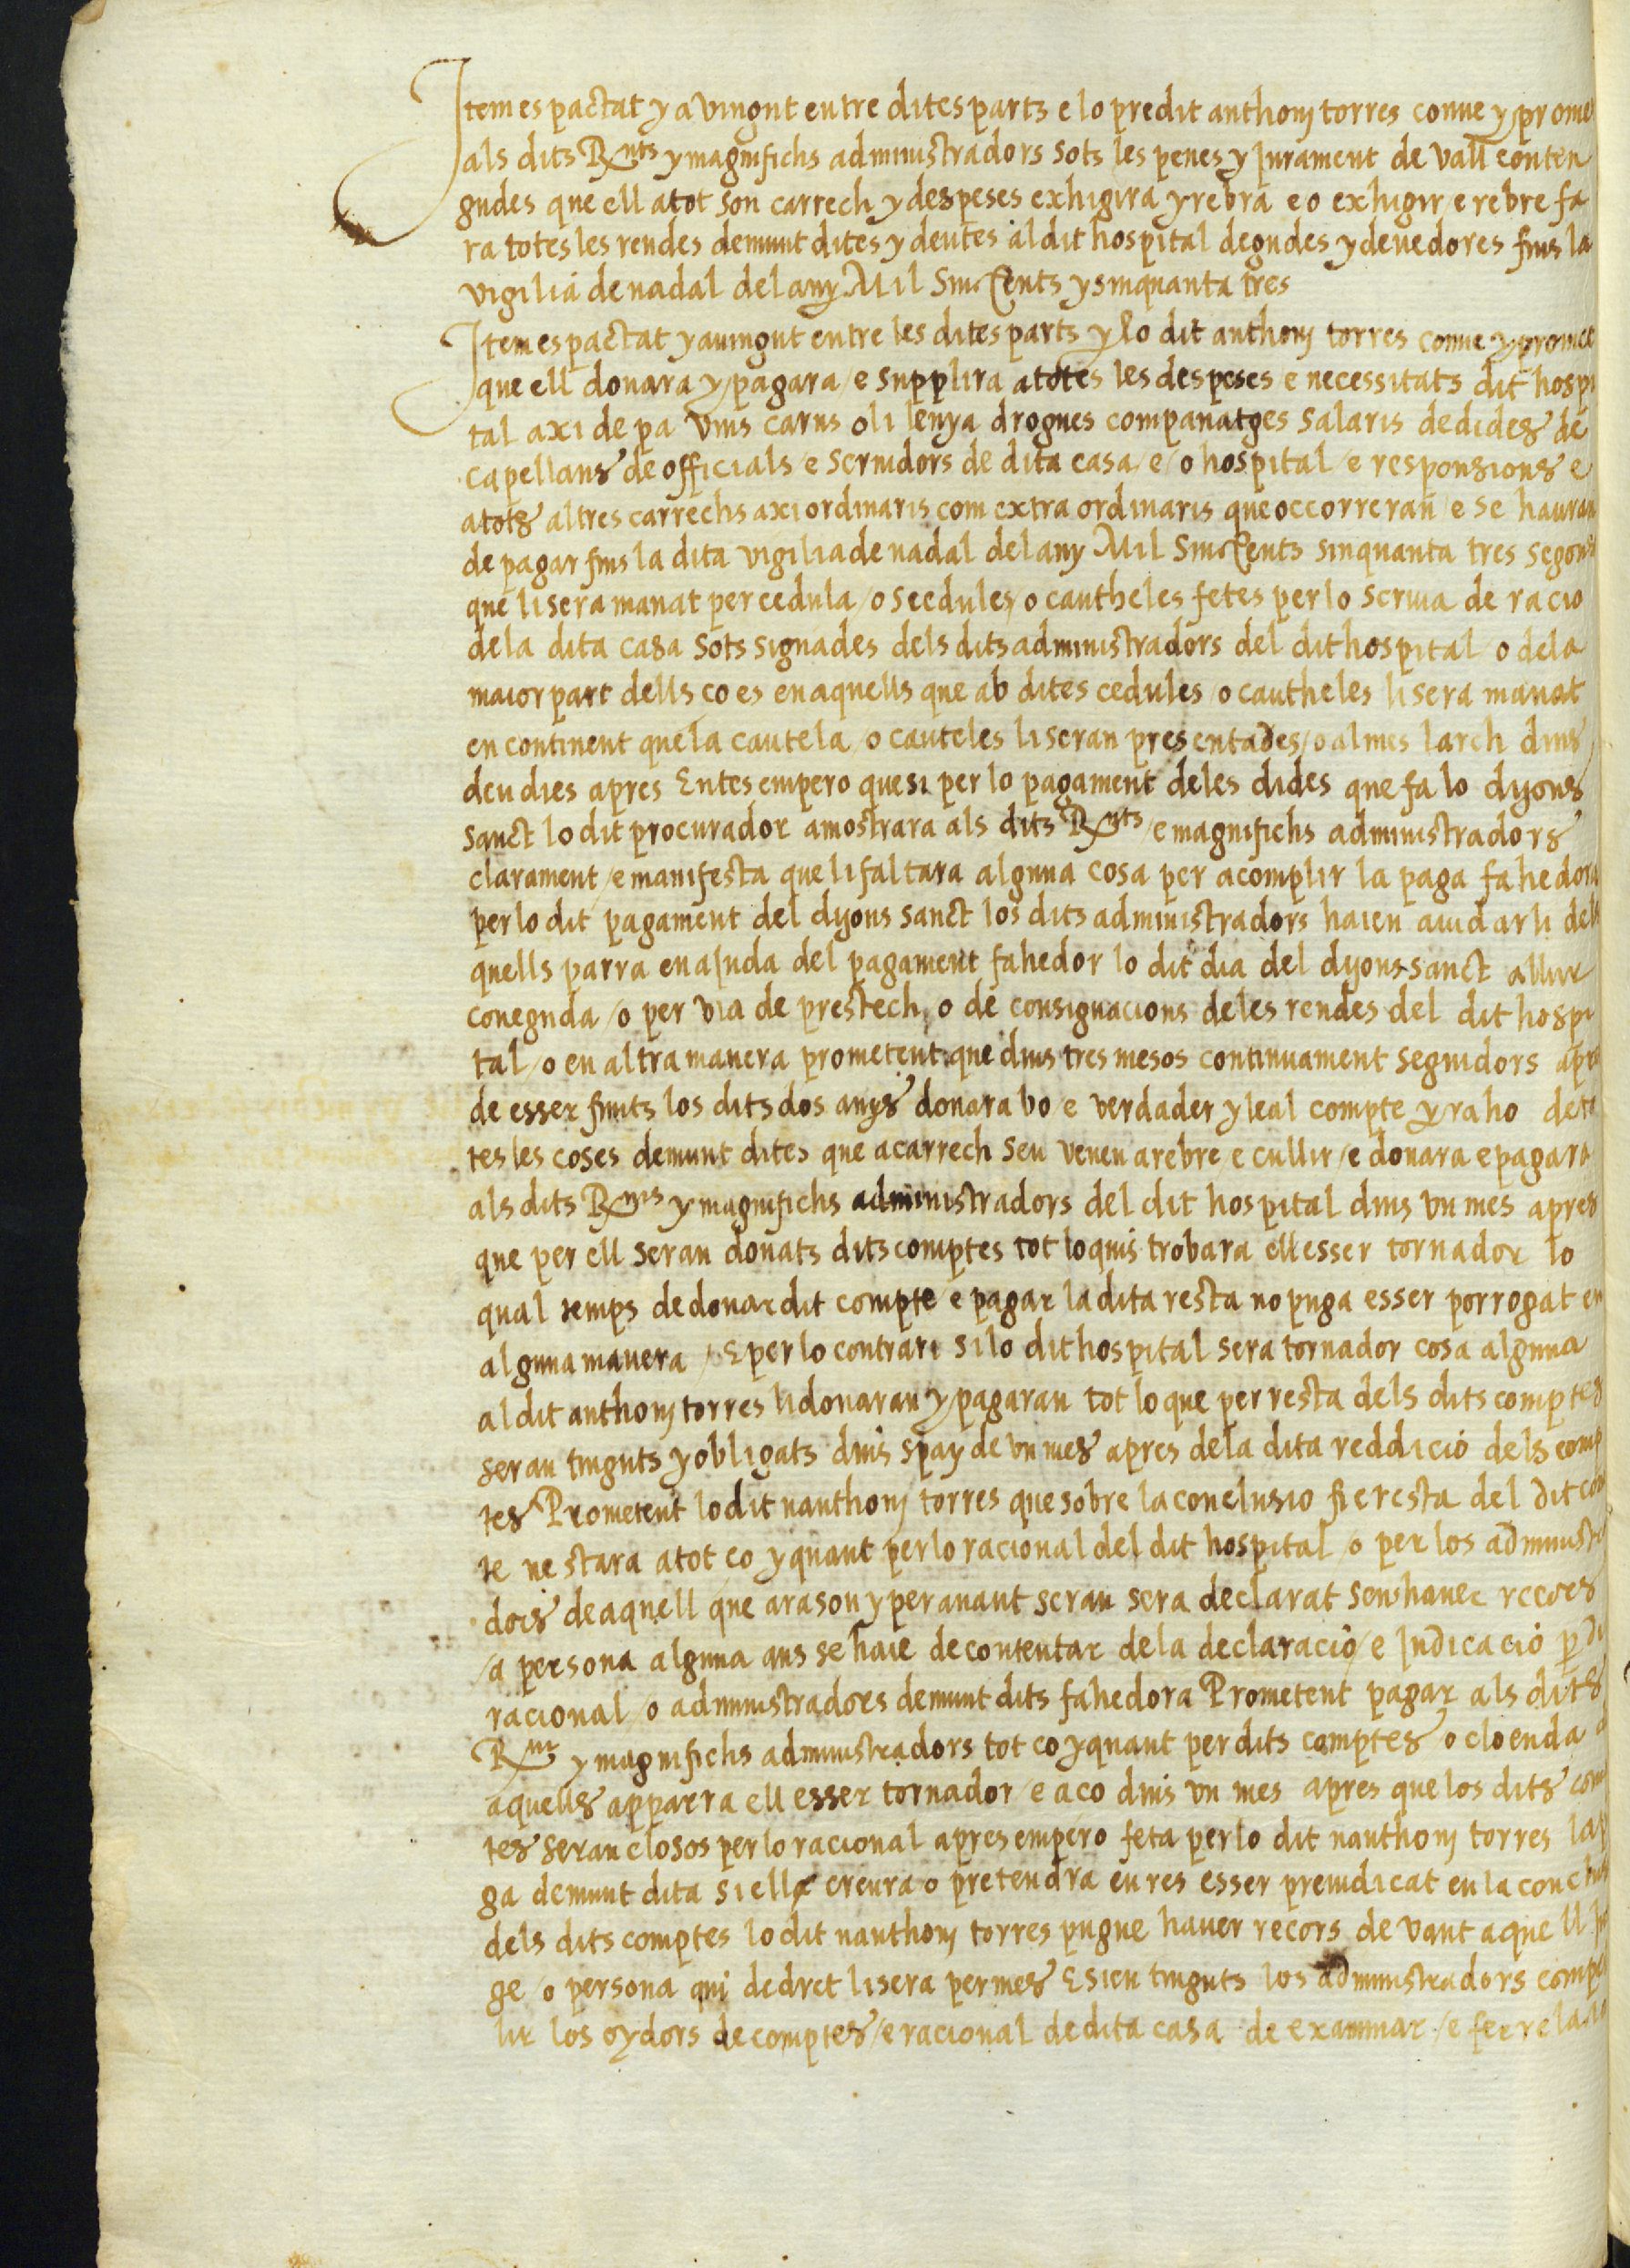 Item es pactat y avingut entre dites parts e lo predit anthonj torres conue y prome
als dits Rnts y magnifichs administradors sots les penes y jurament de vall conten
gudes que ell a tot son carrech y despeses exhigira y rebra e o exhigir e rebre fa
ra totes les rendes demunt dites y deutes al dit hospital degudes y deuedores fins la
vigilia de nadal del any Mil Sinccents y sinquanta tres
Item es pactat y auingut entre les dites parts y lo dit anthonj torres conue y promet
que ell donara y pagara / e supplira a totes les despeses e necessitats dit hospi
tal axi de pa vins carns oli lenya drogues companatges salaris de dides de
capellans de officials / e seruidors de dita casa / e / o hospital / e responsions e
a tots altres carrechs axi ordinaris com extra ordinaris que occorreran / e se hauran
de pagar fins la dita vigilia de nadal del any Mil Sinccents sinquanta tres segons
que li sera manat per cedula / o scedules / o cautheles fetes per lo scriua de racio
de la dita casa sots signades dels dits administradors del dit hospital o de la
maior part dells ço es en aquells que ab dites cedules / o cautheles li sera manat
en continent que la cautela / o cauteles li seran presentades / o al mes larch dins
deu dies apres Entes empero que si per lo pagament de les dides que fa lo dyous
sanct lo dit procurador amostrara als dits Rnts / e magnifichs administradors
clarament / e manifesta que li faltara alguna cosa per acomplir la paga fahedora
per lo dit pagament del dyous sanct los dits administradors haien aiudar li dels
quells parra en ajuda del pagament fahedor lo dit dia del dyous sanct allur
coneguda / o per via de prestech, o de consignacions de les rendes del dit hospi
tal / o en altra manera prometent que dins tres mesos continuament seguidors apres
de esser finits los dits dos anys donara bo / e verdader y leal compte y raho de to
tes les coses demunt dites que a carrech seu venen a rebre / e cullir / e donara e pagara
als dits Rnts y magnifichs administradors del dit hospital dins vn mes apres
que per ell seran donats dits comptes tot lo quis trobara ell esser tornador lo
qual temps de donar dit compte / e pagar la dita resta no puga esser porrogat en
alguna manera / E per lo contrari si lo dit hospital sera tornador cosa alguna
al dit anthonj torres li donaran y pagaran tot lo que per resta dels dits comptes
seran tinguts y obligats dins spay de vn mes apres de la dita reddicio dels comp
tes Prometent lo dit nanthonj torres que sobre la conclusio fi e resta del dit com
te ne stara a tot ço y quant per lo racional del dit hospital / o per los administra
dors de aquell que ara son y per auant seran sera declarat sens hauer recors
/ a persona alguna ans se haie de contentar de la declaracio / e judicacio per di
racional / o administradors demunt dits fahedora Prometent pagar als dits
Rnt y magnifichs administradors tot ço y quant per dits comptes o cloenda
aquells apparra ell esser tornador / e aço dins vn mes apres que los dits com
tes seran closos per lo racional apres empero feta per lo dit nanthonj torres la p
ga demunt dita si ell creura o pretendra en res esser preiudicat en la conclus
dels dits comptes lo dit nanthonj torres pugue hauer recors de vant aquell ju
ge / o persona qui de dret li sera permes E sien tinguts los administradors compe
lir los oydors de comptes / e racional de dita casa de examinar / e fer relacio